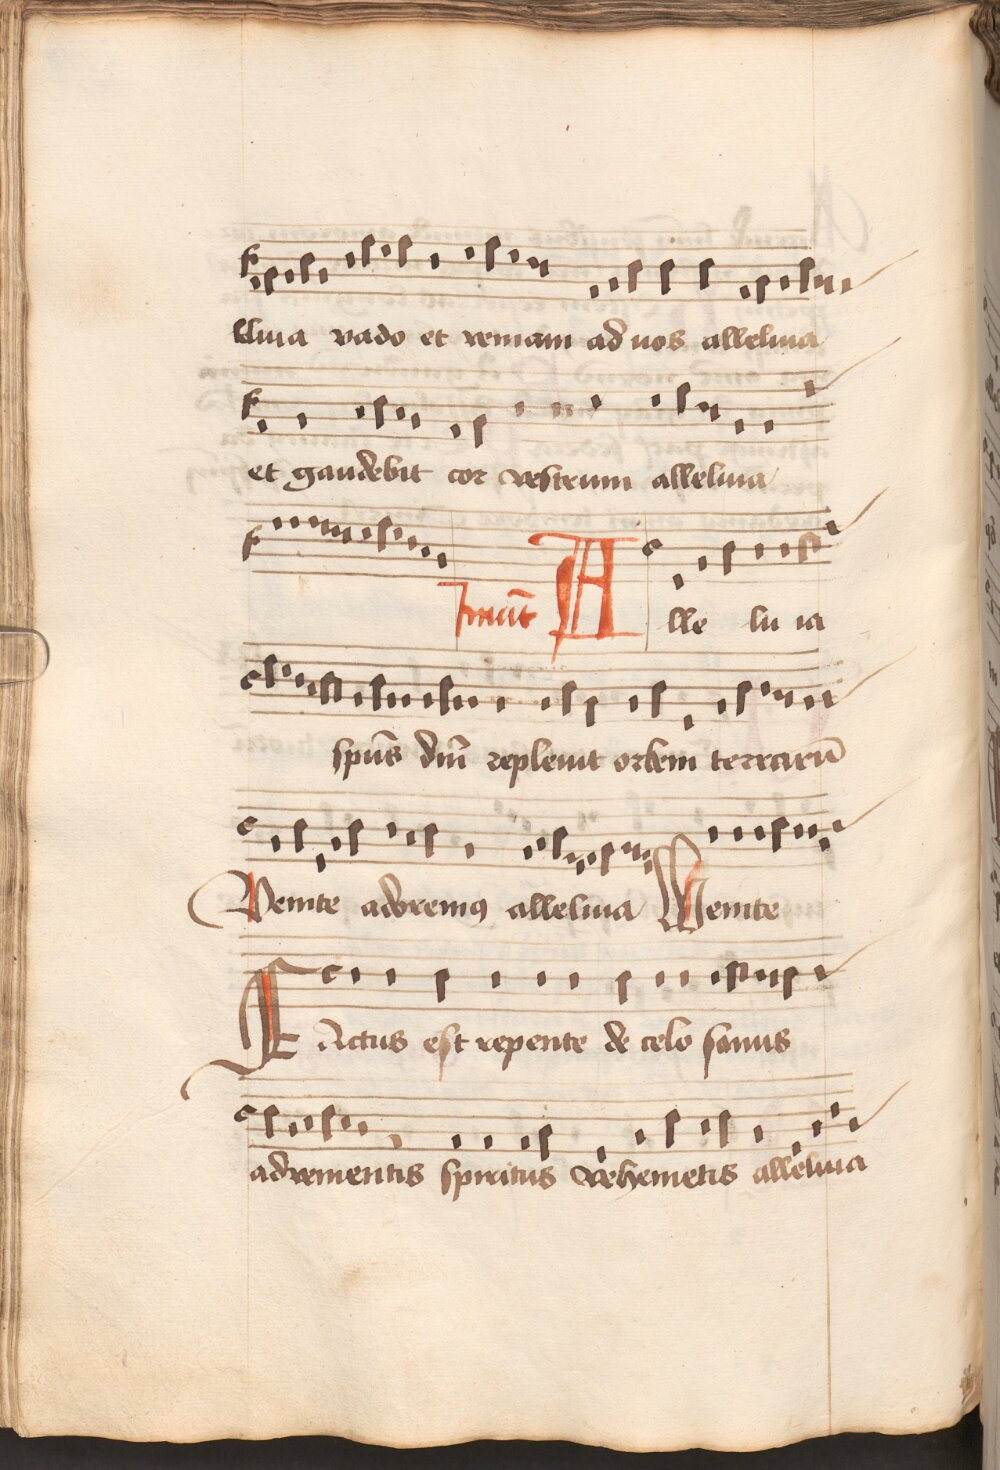 lluia vado et veniam ad vos alleluia
et gaudebit cor vestrum alleluia
Inuit̄ A lle lu ia
spūs dnī repleuit orbem terrarū
Venite adoremꝰ alleluia Venite
FActus est repente de celo sonus
aduenientis spiritus vehemētis alleluia